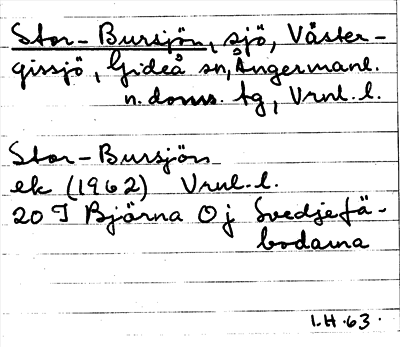 Stor-Bursjön, sjö, Väster-
gissjö, Gideå sn, Ångermanl.
n. doms. tg, Vrnl. l.
Stor-Bursjön
ek (1962) Vrnl. l.
20 I Björna O j Svedjefä-
bodarna
I.H.63.